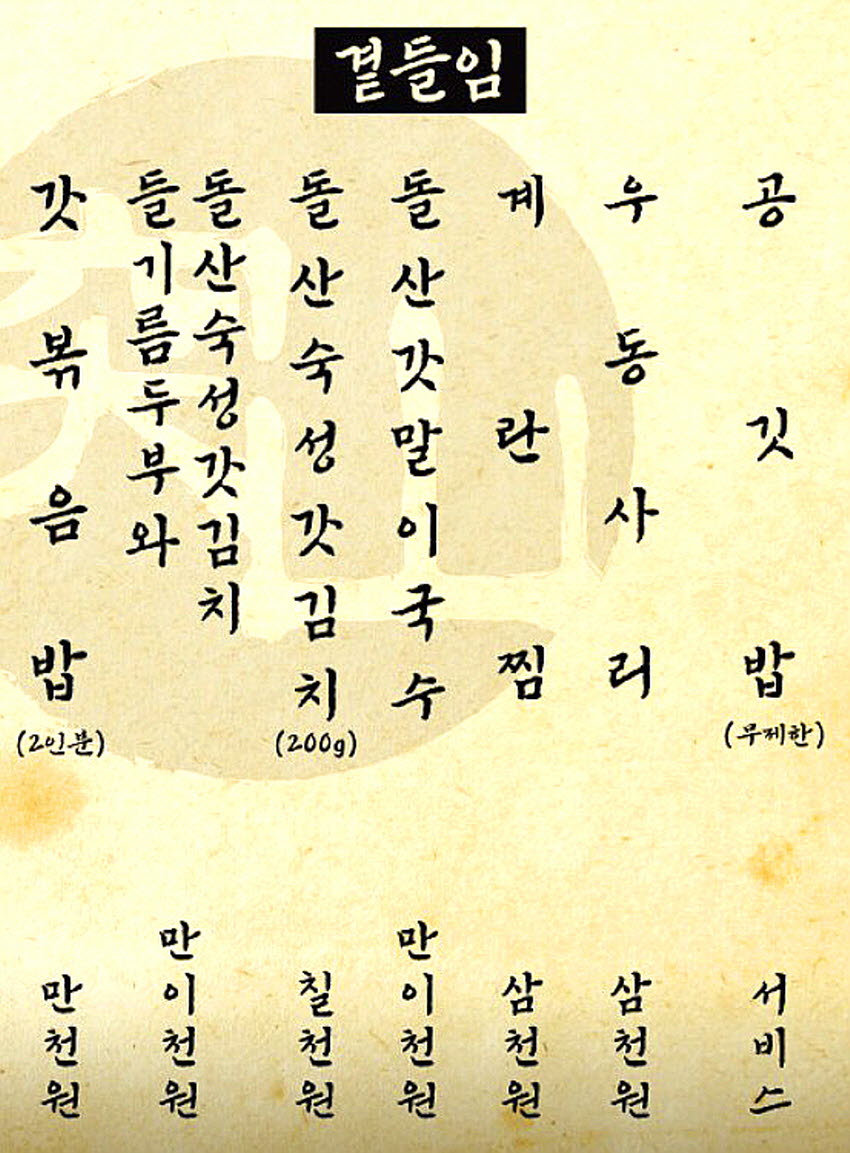 곁들임
공깃밥
(무제한)
서비스
우동사리
삼천원
계란찜
삼천원
돌산갓말이국수
만이천원
돌산숙성갓김치
(200g)
칠천원
돌산숙성갓김치
들기름두부와
만이천원
갓볶음밥
(2인분)
만천원